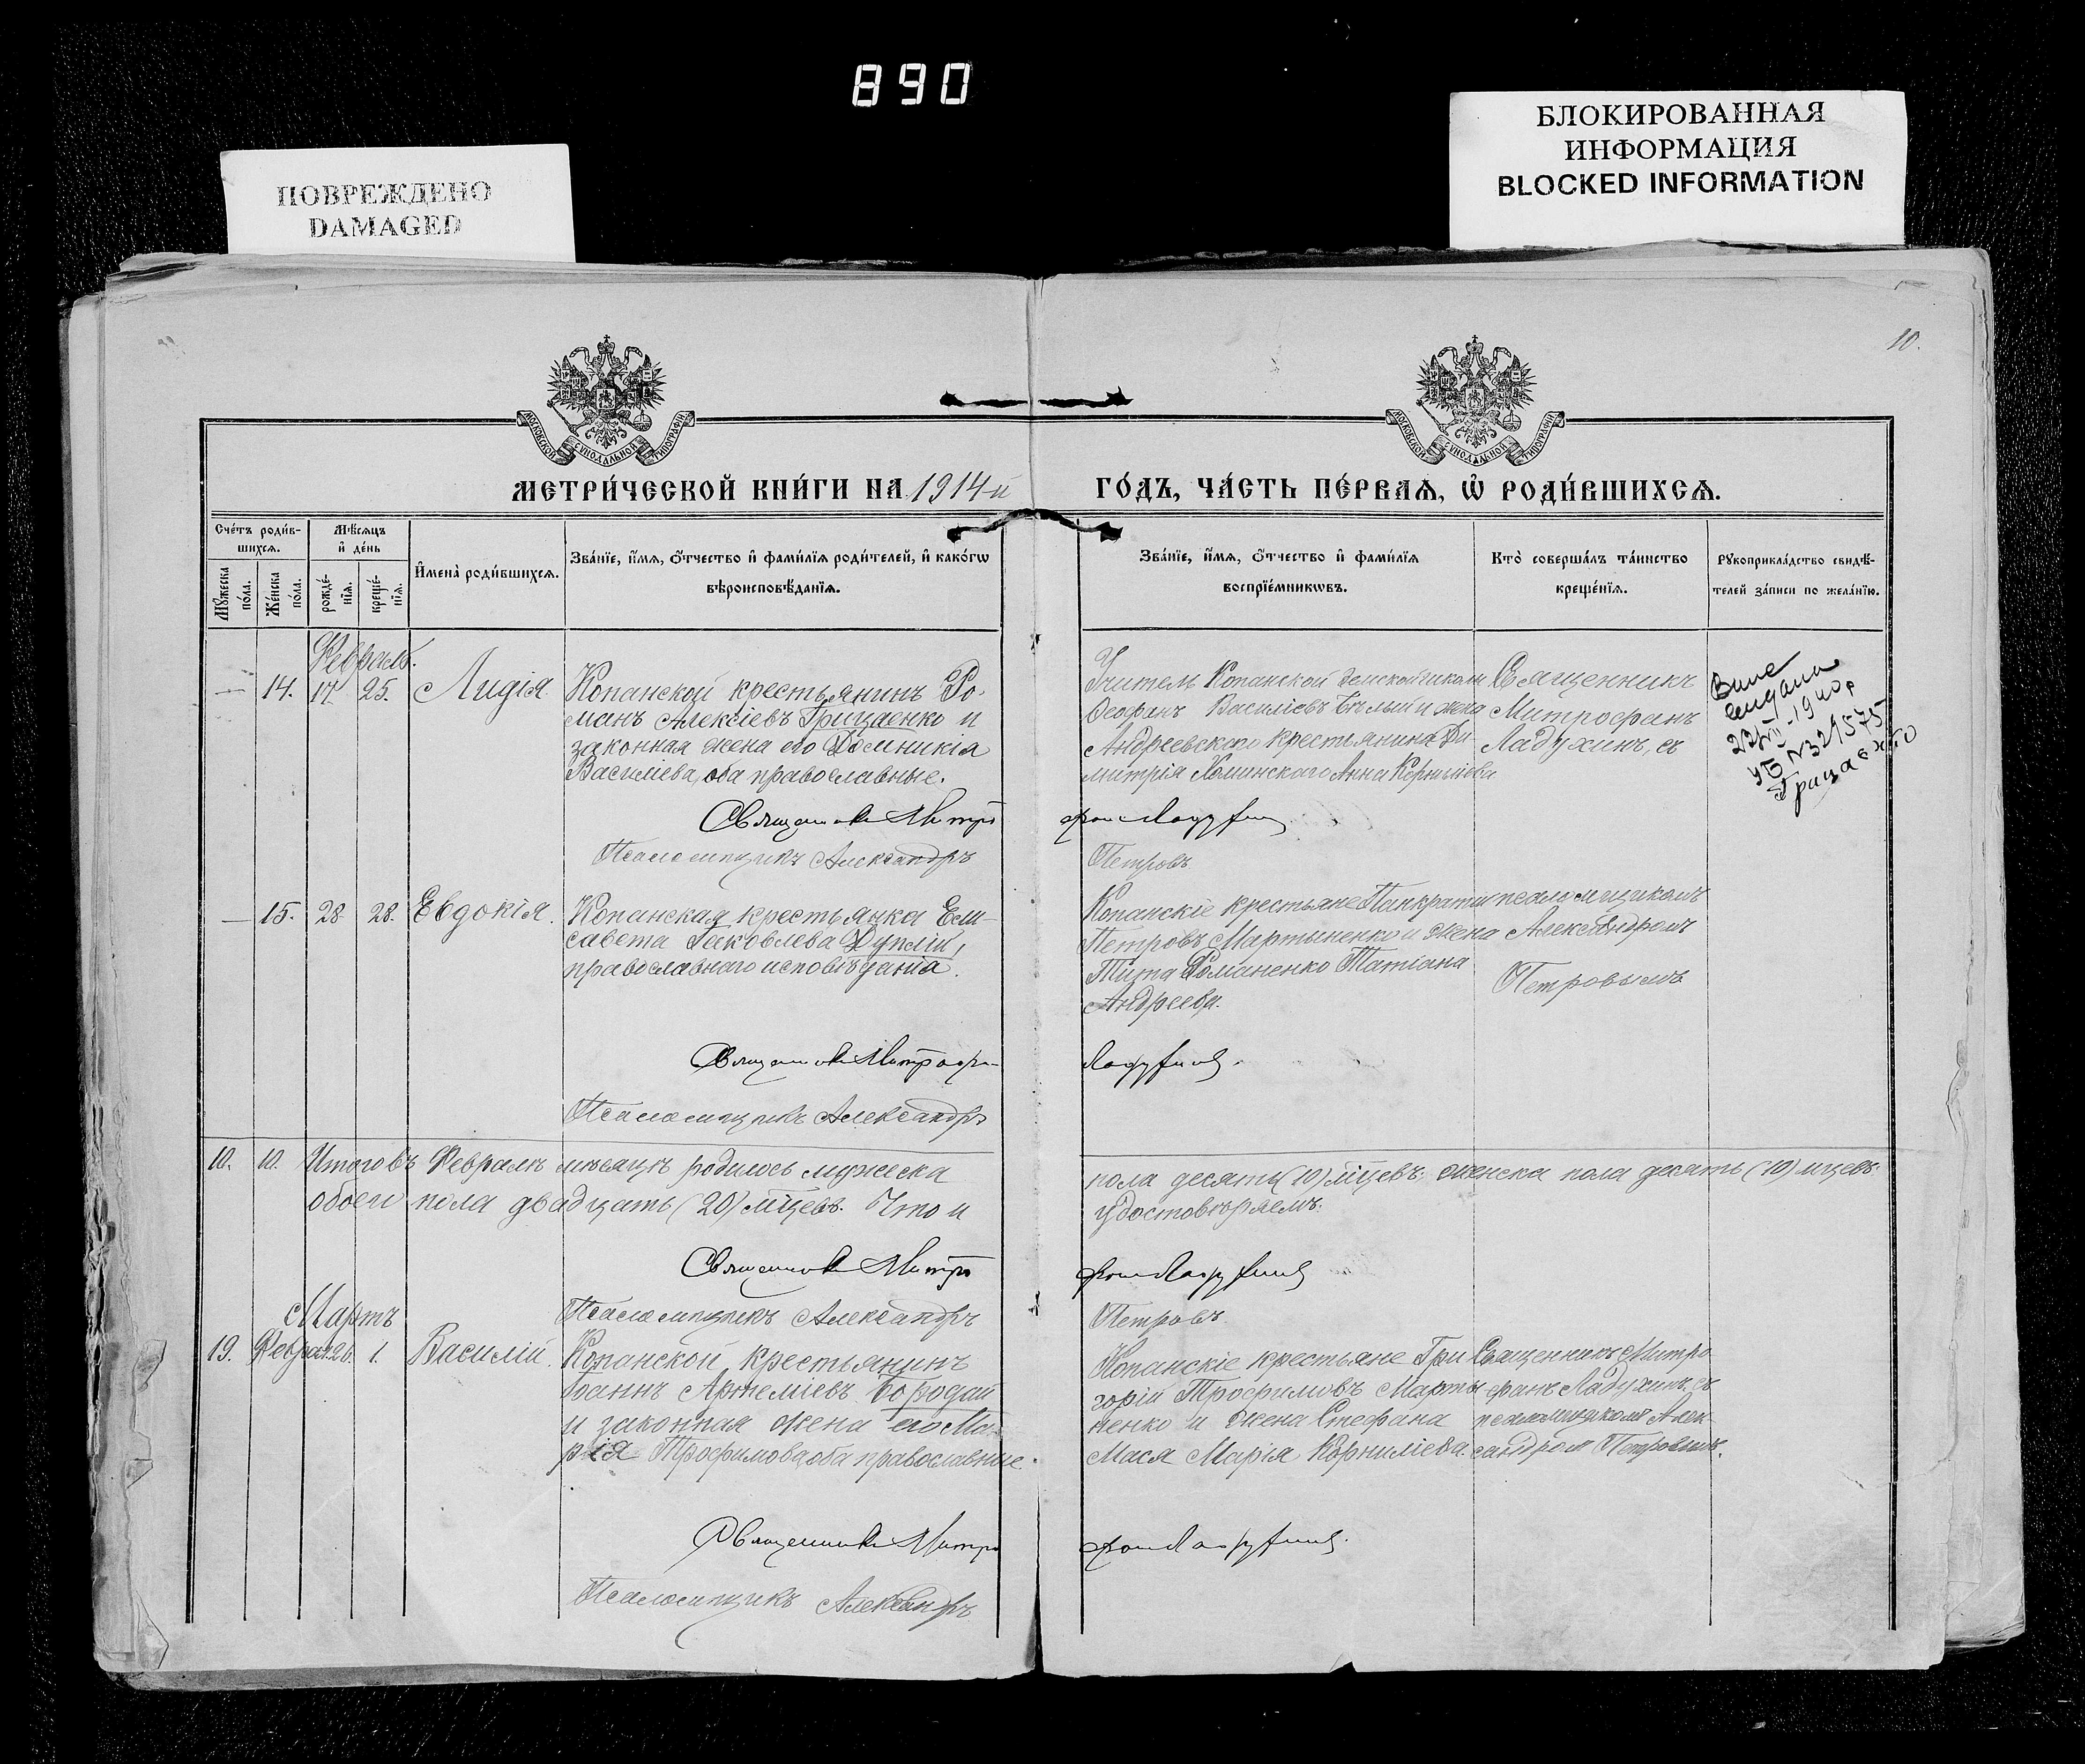 890
ПОВРЕЖДЕНО
DAMAGED
БЛОКИРОВАННАЯ
ИНФОРМАЦИЯ
BLOCKED INFORMATION
10.
МОСКОВСКОЙ СѴНОДАЛЬНОЙ ТИПОГРАФІИ
МОСКОВСКОЙ СѴНОДАЛЬНОЙ ТИПОГРАФІИ
МЕТРИ́ЧЕСКОЙ КНИ́ГИ НА 1914й ГО́ДЪ, ЧА́СТЬ ПЕ́РВАѦ, Ѡ҆ РОДИ́ВШИХСѦ.
Сче́тъ роди́в-
шихсѧ.
Мѣ́сѧцъ
и҆ де́нь
Мꙋ́жеска
по́ла.
Же́нска
по́ла.
рожде́-
нїѧ.
креще́-
нїѧ.
И҆мена̀ роди́вшихсѧ.
Зва́нїе, и҆́мѧ, ѻ҆́тчество и҆ фами́лїѧ роди́телей, и҆ како́гѡ
вѣроисповѣ́данїѧ.
Зва́нїе, и҆́мѧ, ѻ҆́тчество и҆ фами́лїѧ
воспрїе́мникѡвъ.
Кто̀ соверша́лъ та́инство
креще́нїѧ.
Рꙋкоприкла́дство свидѣ́-
телей за́писи по жела́нїю.
Февраль.
— 14. 17 25. Лидія.
Копанской крестьянинъ Ро-
манъ Алексіевъ Грицаенко и
законная жена его Домникія
Василіева, оба православные.
Учитель Копанской земской школы
Феофанъ Василіевъ Бѣлый и жена
Андреевскаго крестьянина Ди-
митрія Хоминскаго Анна Корниліева
Священникъ
Митрофанъ
Ладухинъ, съ
1940
Священникъ Митро
фанъ Ладухинъ
Псаломщикъ Александръ
Петровъ
— 15. 28 28. Евдокія.
Копанская крестьянка Ели-
савета Іаковлева Дуплій,
православнаго исповѣданія.
Копанскіе крестьяне Панкратій
Петровъ Мартыненко и жена
Тита Романенко Татіана
Андреева.
псаломщикомъ
Александромъ
Петровымъ
Священникъ Митрофанъ
Ладухинъ.
Псаломщикъ Александръ
10. 10. Итого въ Февралѣ мѣсяцѣ родилось мужеска пола десять (10) мцевъ; женска пола десять (10) мцевъ.
обоего пола двадцать (20) мцевъ. Что и удостовѣряемъ.
Священникъ Митро
фанъ Ладухинъ
Псаломщикъ Александръ
Петровъ.
Мартъ
19. Феврал. 26. 1. Василій.
Копанской крестьянинъ
Іоаннъ Артеміевъ Бородай
и законная жена его Ма-
рія Трофимова, оба православные.
Копанскіе крестьяне Гри
горій Трофимовъ Марты
ненко и жена Стефана
Мася Марія Корниліева.
Священникъ Митро
фанъ Ладухинъ, съ
псаломщикомъ Алек
сандром Петровымъ.
Священникъ Митро
фанъ Ладухинъ.
Псаломщикъ Александръ